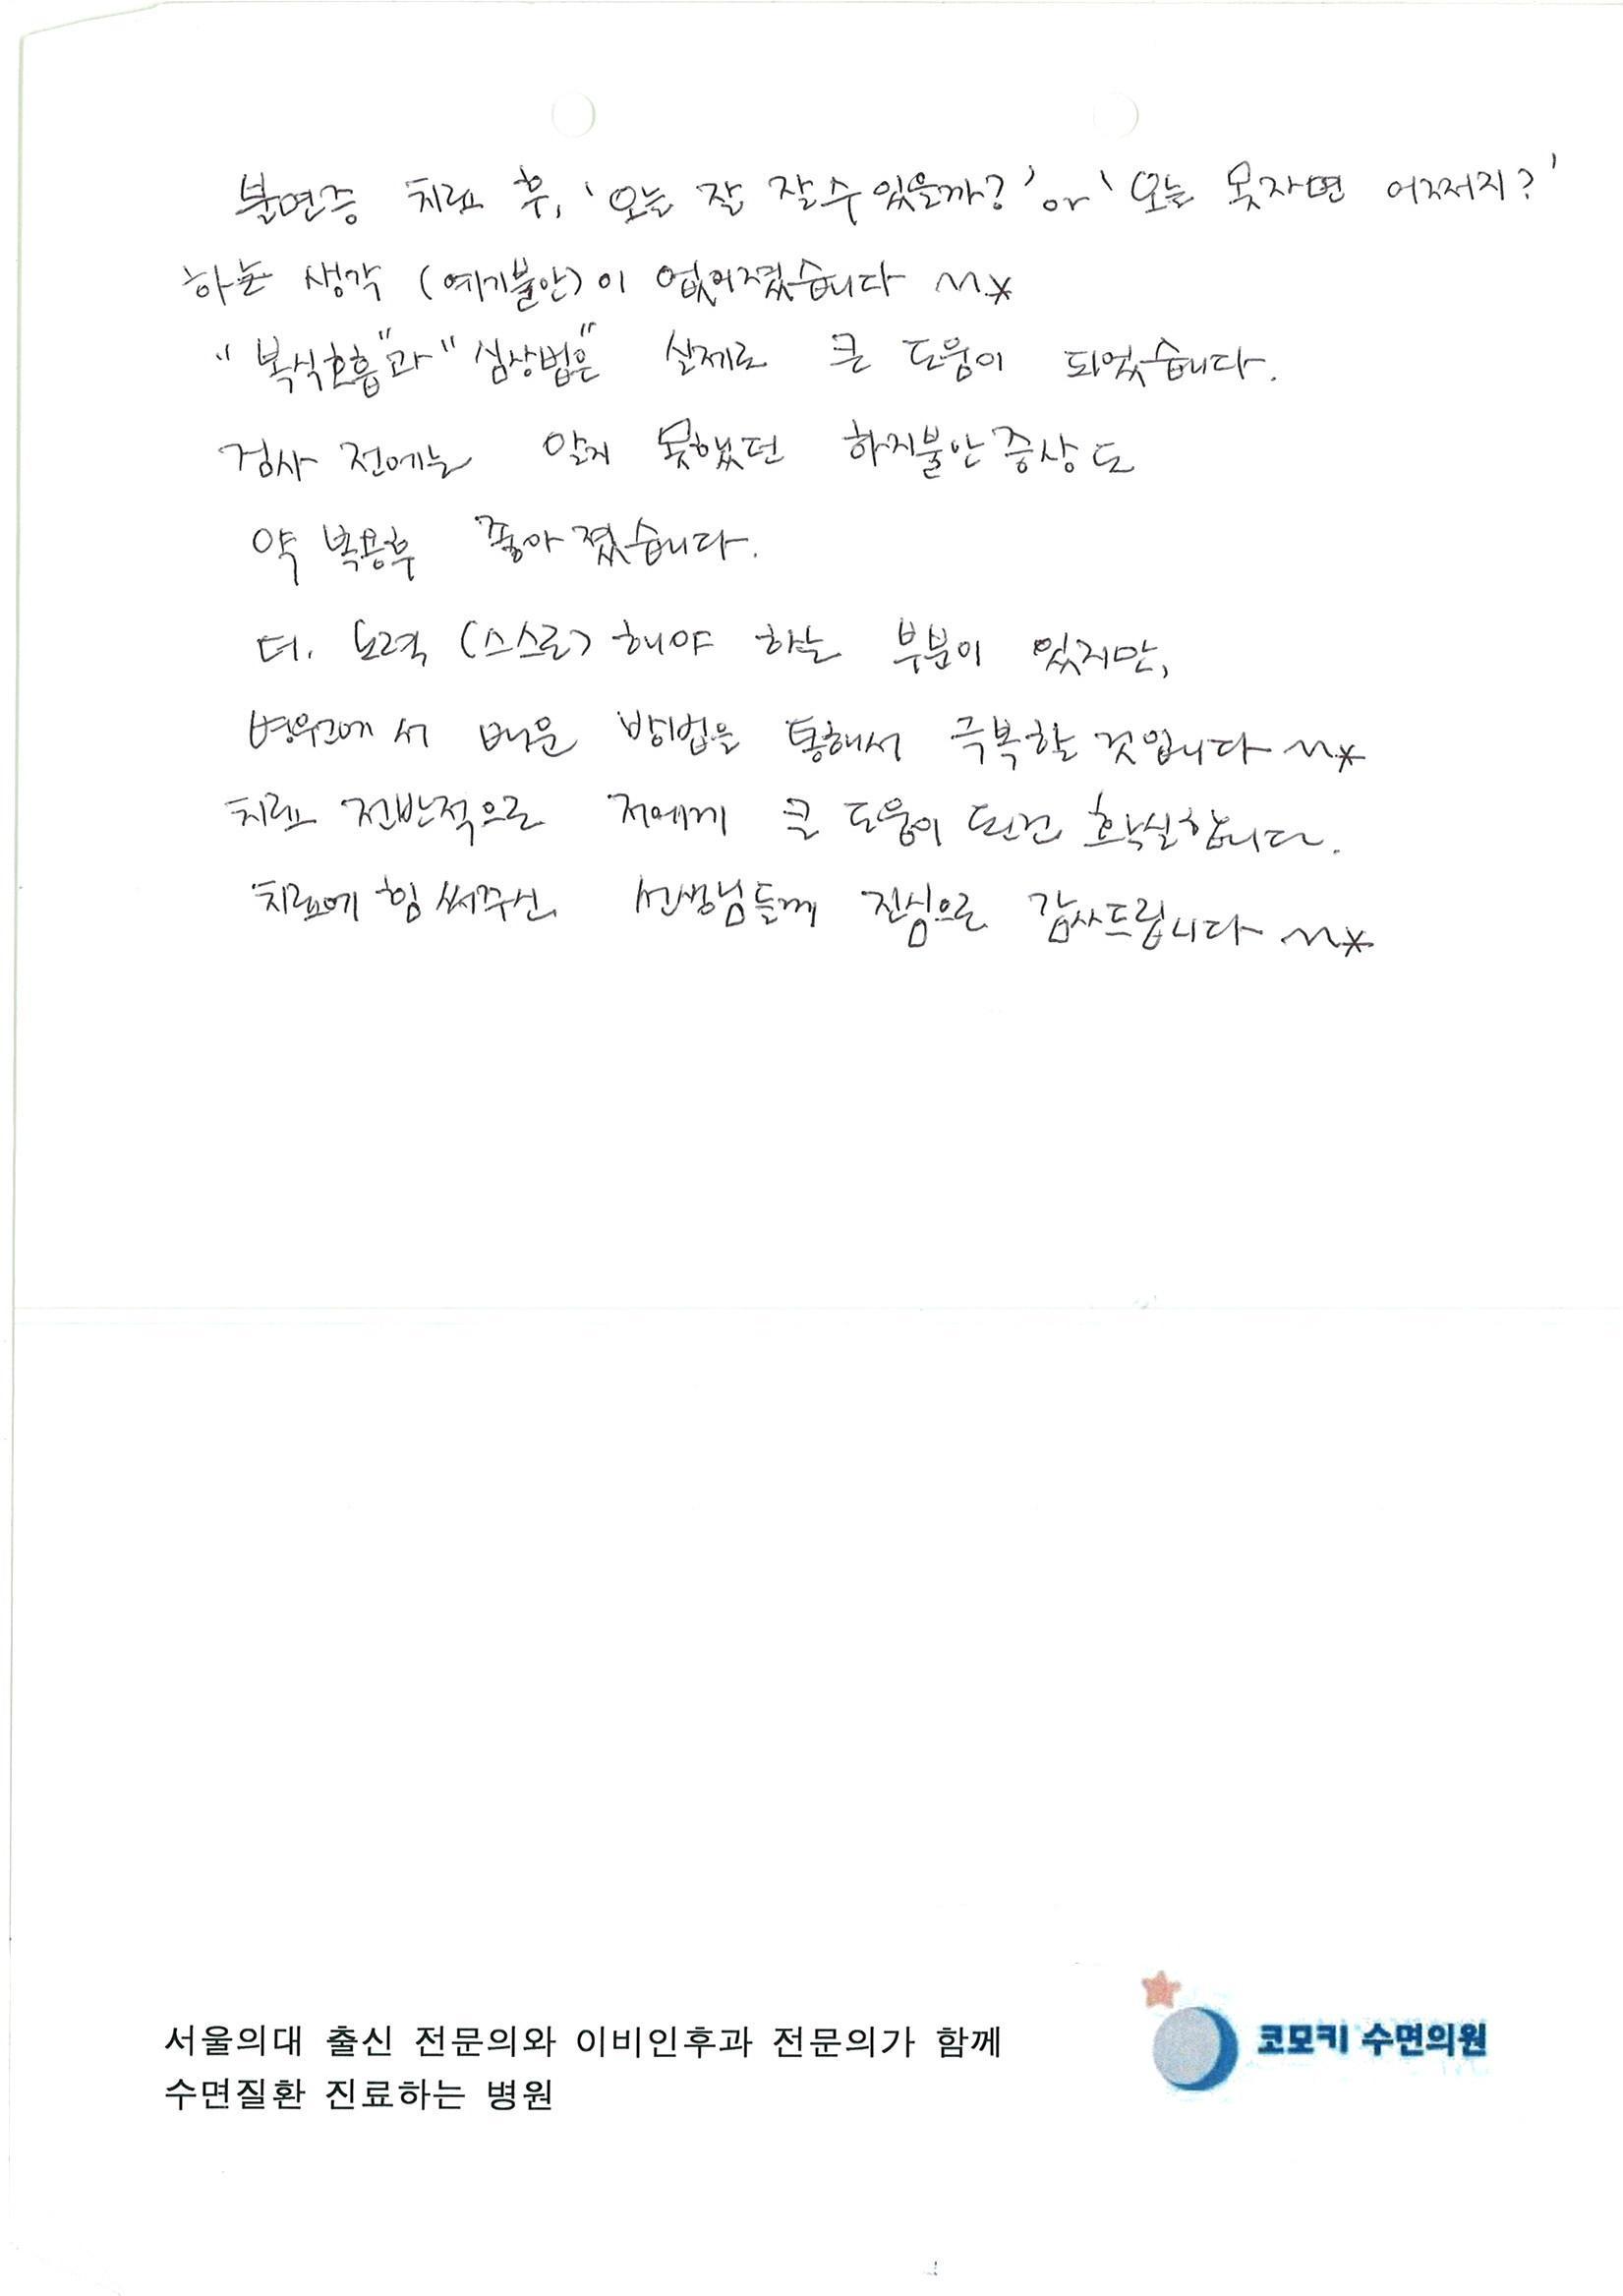 불면증 치료 후, '오늘 잘 잘수 있을까?' or '오늘 못자면 어쩌지?'
하는 생각 (예기불안)이 없어졌습니다 ~*
"복식호흡"과 "심상법은" 실제로 큰 도움이 되었습니다.
검사 전에는 알지 못했던 하지불안증상도
약 복용후 좋아졌습니다.
더. 노력 (스스로) 해야 하는 부분이 있지만,
병원에서 배운 방법을 통해서 극복할 것입니다 ~*
치료 전반적으로 저에게 큰 도움이 된건 확실합니다.
치료에 힘써주신 선생님들께 진심으로 감사드립니다 ~*
서울의대 출신 전문의와 이비인후과 전문의가 함께
수면질환 진료하는 병원
코모키 수면의원